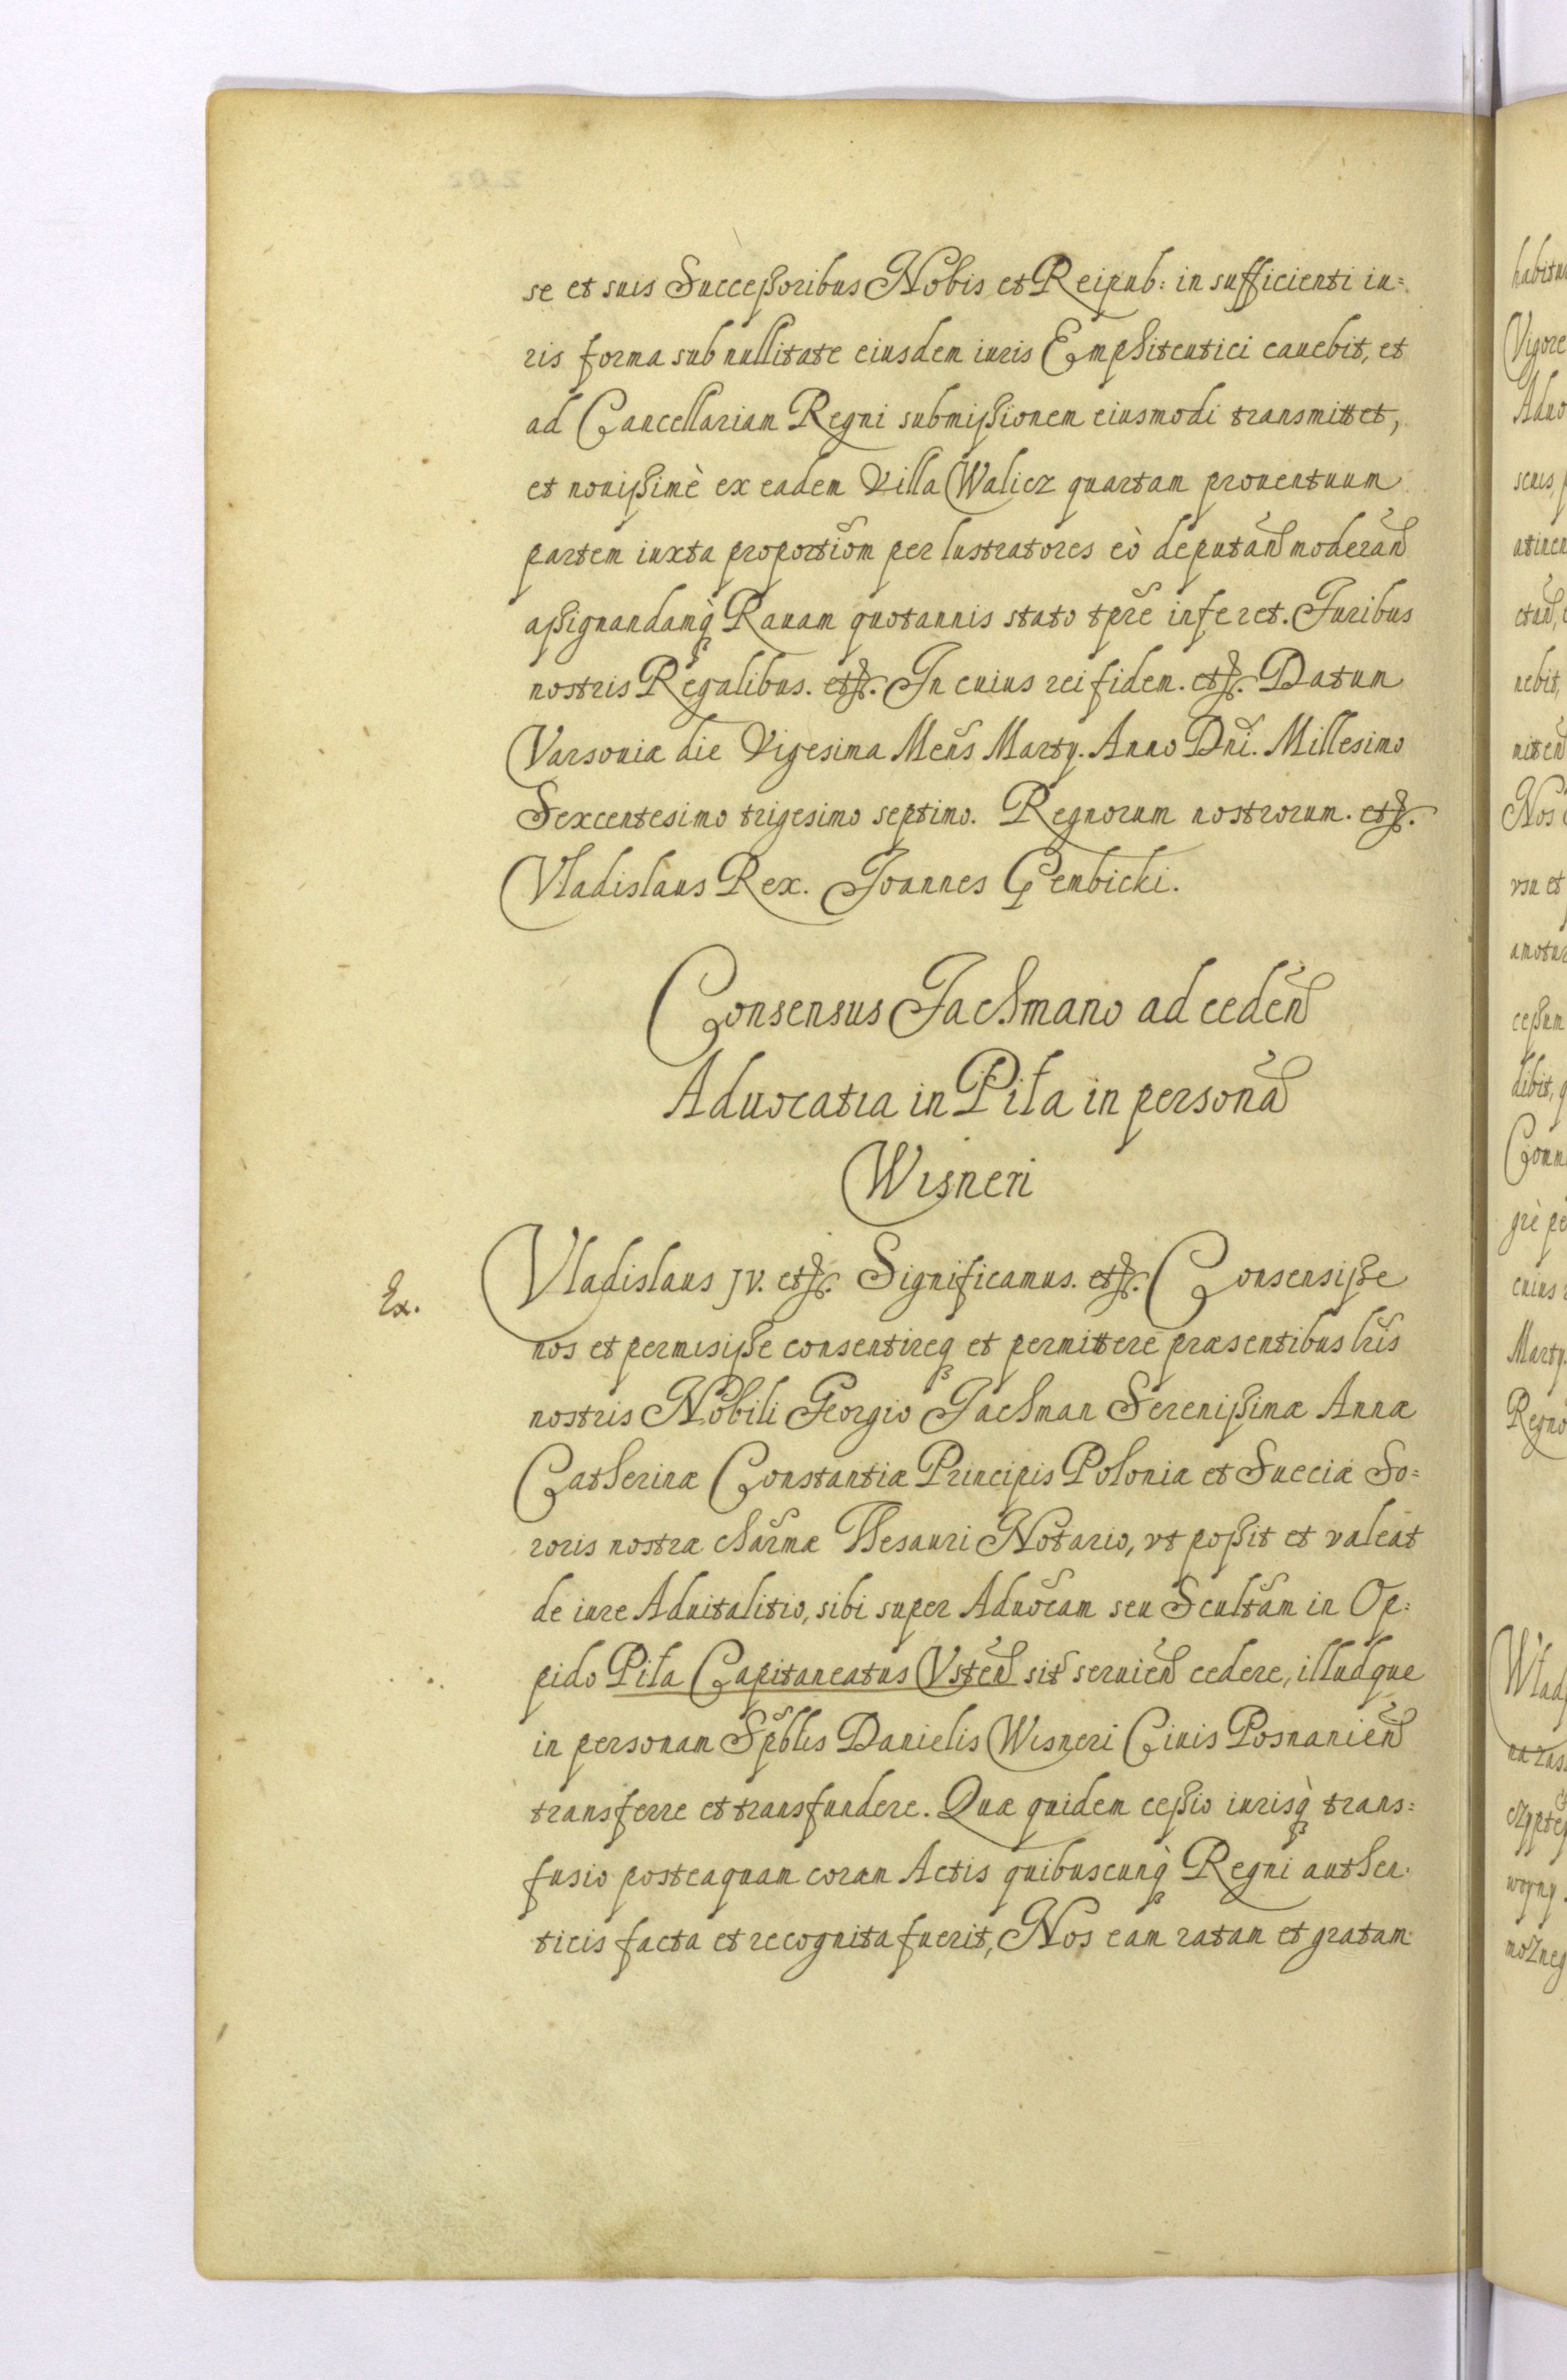 se et suis Succeßoribus Nobis et Reipub: in sufficienti iu=
ris forma sub nullitate eiusdem iuris Emphiteutici cauebit, et
ad Cancellariam Regni submißionem eiusmodi transmittet,
et nouißimè ex eadem Villa Walicz quartam prouentuum
partem iuxta proportiõm per lustratores eò deputãd moderãd
aßignandamq̀ Rauam quotannis stato tp̃re inferet. Juribus
nostris Regalibus. etc. In cuius rei fidem. etc. Datum
Varsouiæ die Vigesima Mens̃ Martij. Anno Dñi. Millesimo
Sexcentesimo trigesimo septimo. Regnorum nostrorum. etc.
Vladislaus Rex. Joannes Gembicki.
Consensus Jachmano ad cedeñd
Aduocatia in Piła in personã
Wisneri
Ex.
Vladislaus IV. etc. Significamus. etc. Consensiße
nos et permisiße consentireq et permittere præsentibus lr̃is
nostris Nobili Georgio Jachman Serenißimæ Annæ
Catherinæ Constantiæ Principis Poloniæ et Sueciæ So=
roris nostræ char̃mæ Thesauri Notario, vt poßit et valeat
de iure Aduitalitio, sibi super Aduõcam seu Scult̃am in Op:
pido Piła Capitaneatus Vsteñ sit̃ seruieñ cedere, illudque
in personam Sp̃blis Danielis Wisneri Ciuis Posnanieñ
transferre et transfundere. Quæ quidem ceßio iurisq̀ trans=
fusio posteaquam coram Actis quibuscunq̀ Regni authen:
ticis facta et recognita fuerit, Nos eam ratam et gratam